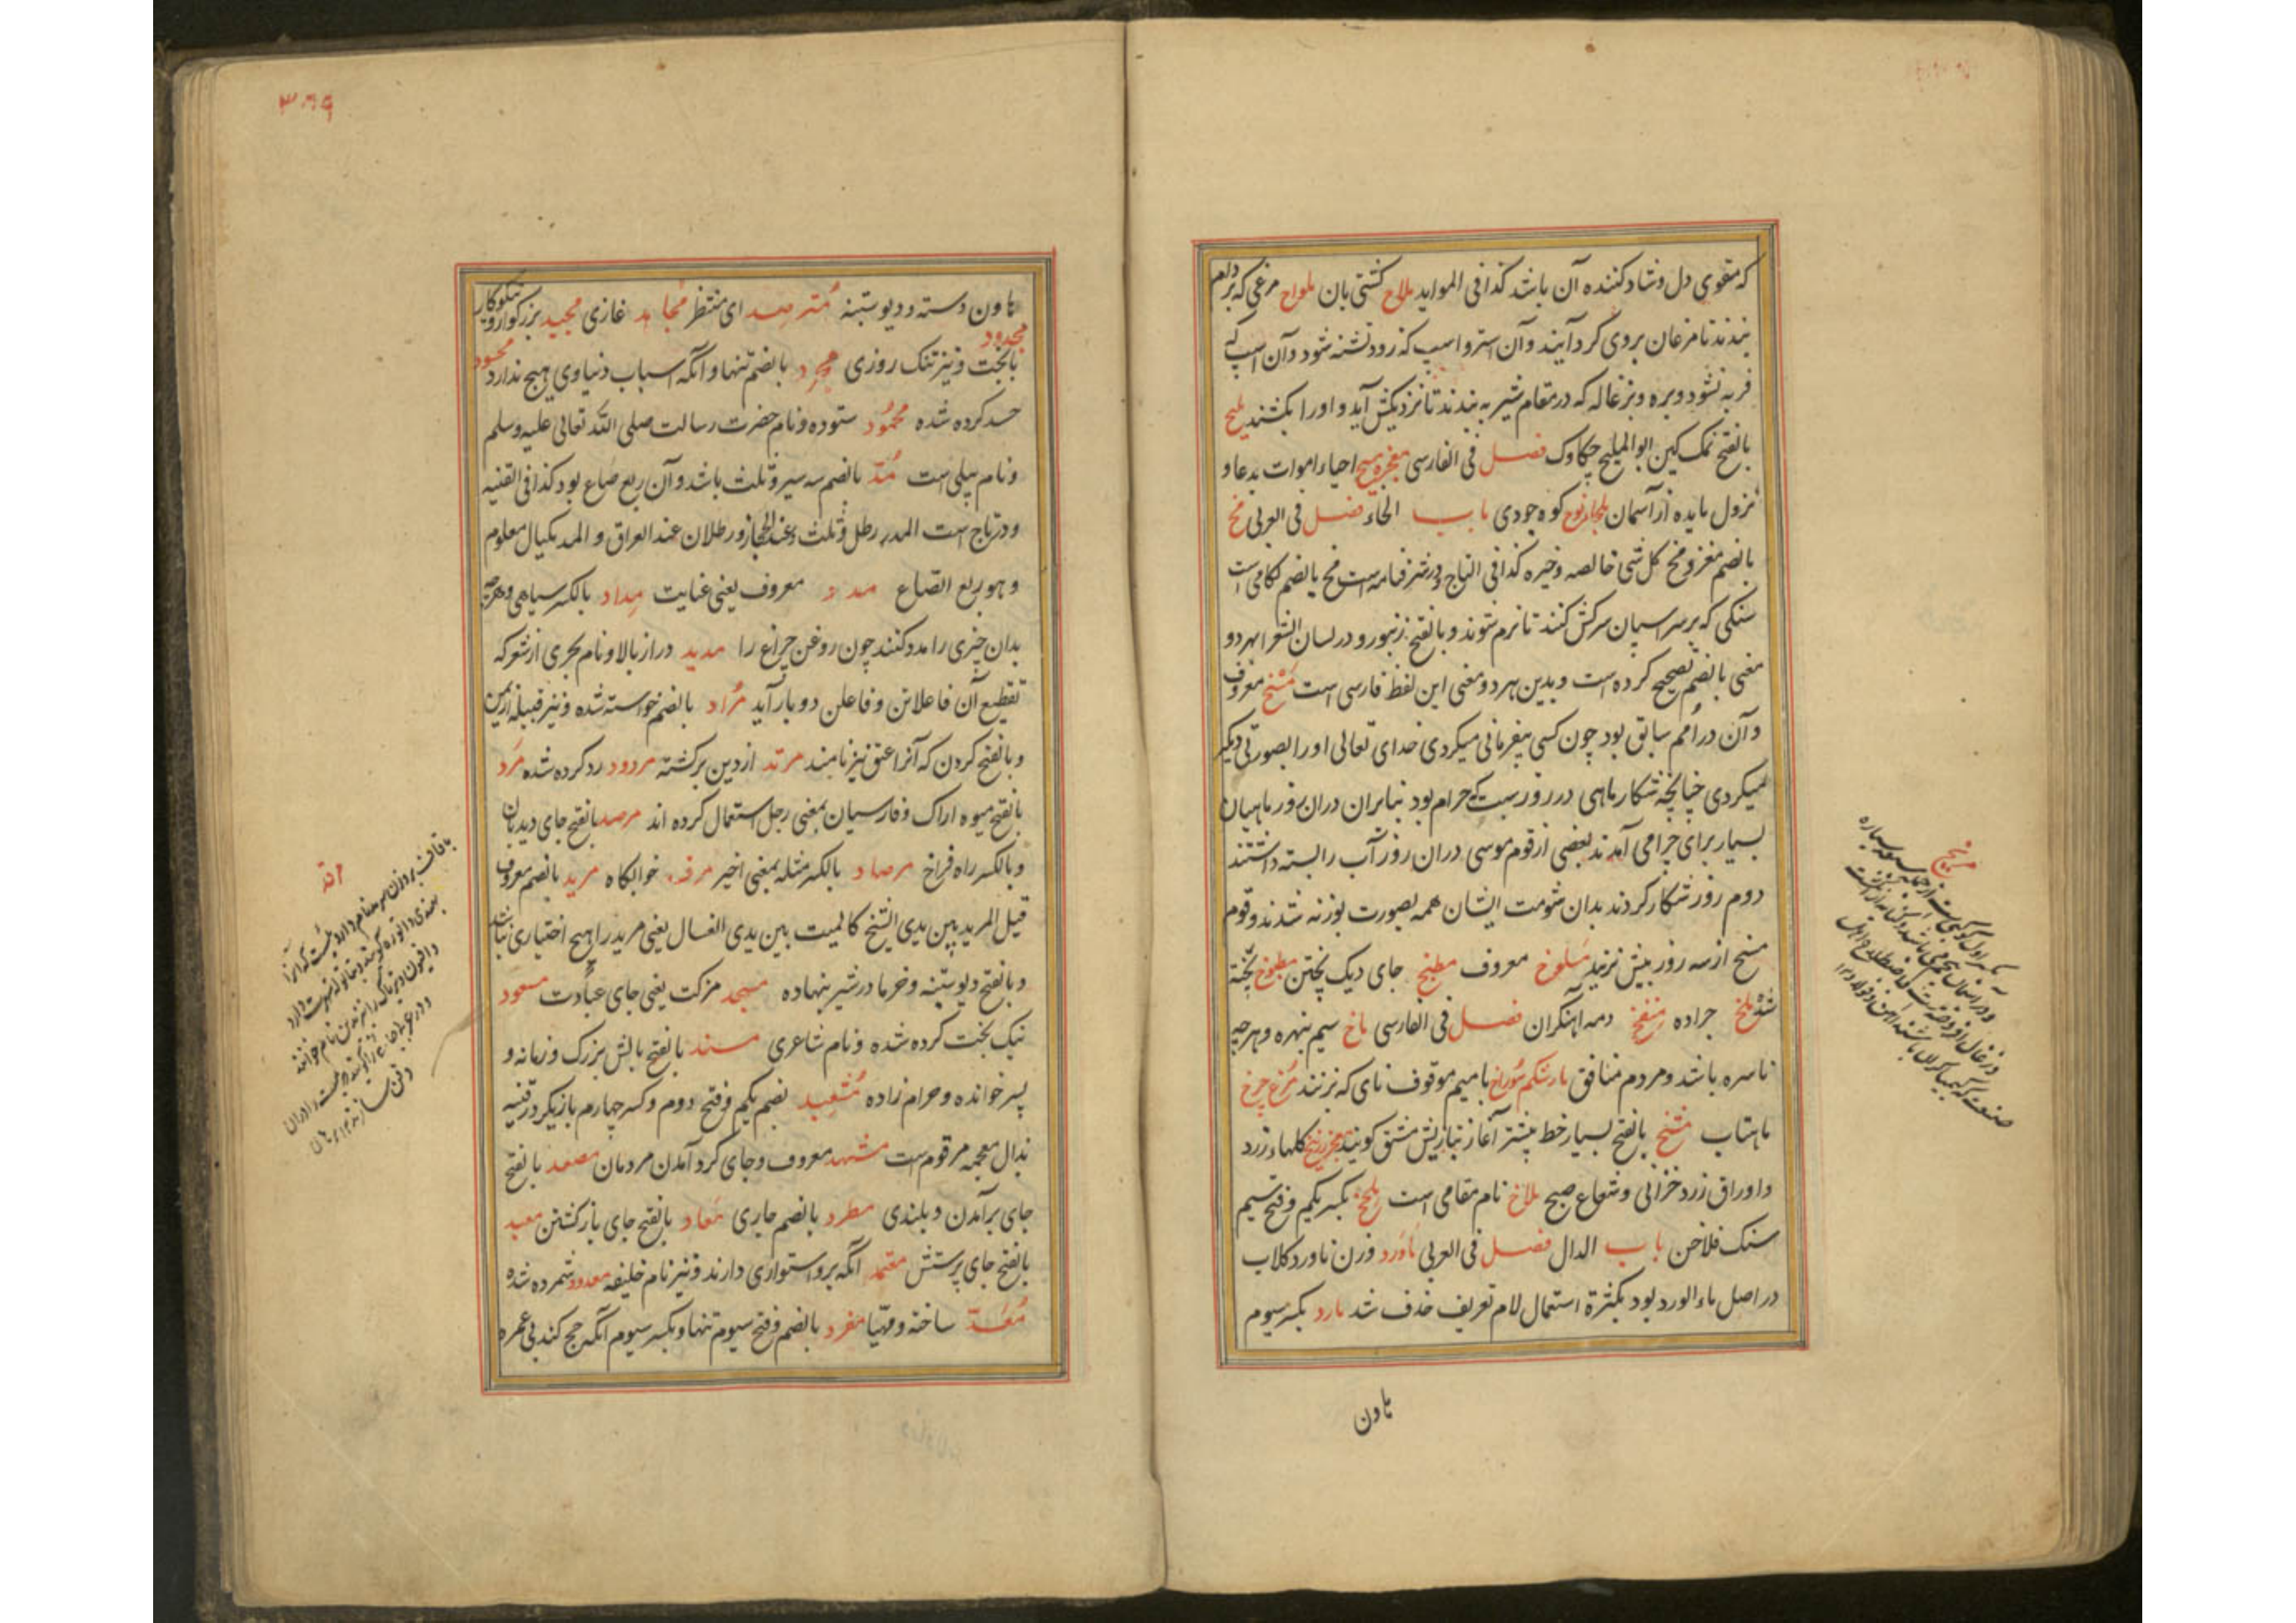 که مقوی دل و شاد کننده آن باشد کذا فی الموايد ملاح کشتی بان ملواح مرغی که بر دام
بندند تا مرغان بروی گرد آیند و آن استر و اسپ که زود تشنه شود و آن اسپ که
فربه نشود و بره و بزغاله که در مقام شیر به بندند تا نزدیکش آید و او را بکشند ملیح
بالفتح نمک کین ابو الملیح چکاوک فصل فی الفارسی معجزه مسیح احیاء اموات بدعا و
نزول مایده از آسمان ملجاء نوح کوه جودی باب الخاء فصل فی العربی مخ
بالضم مغز و مخ کل شی خالصه و خیره کذا فی التاج و در شرفنامه است مخ بالضم لکامی است
سنکی که بر سر اسپان سرکش کنند تا نرم شوند و بالفتح زنبور و در لسان الشعرا بهر دو
معنی بالضم تصحیح کرده است و بدین هر دو معنی این لفظ فارسی است مسخ معروف
و آن در امم سابق بود چون کسی بیفرمانی میکردی خدای تعالی او را بصورتی دیکر
میکردی چنانچه شکار ماهی در روز سبت حرام بود بنابران دران روز ماهیان
بسیار برای چرامی آمدند بعضی از قوم موسی دران روز آب را بسته داشتند
دوم روز شکار کردند بدان شومت ایشان همه بصورت بوزنه شدند و قوم
مسخ از سه روز بیش نزید مسلوخ معروف مطبخ جای دیک پختن مطبوخ پخته
شده ملخ جراده منفخ دمه آهنکران فصل فی الفارسی ماخ سیم بنهره و هرچه
ناسره باشد و مردم منافق مارشکم سوراخ با میم موقوف نای که نزنند مرغ چرخ
ماهتاب مشخ بالفتح بسیار خط بیشتر آغاز تبازیش مشق کویند کلهاء زرد
و اوراق زرد خزانی و شعاع صبح ملاخ نام مقامی است ملخج بکسر یکم و فتح سیم
سنک فلاخن باب الدال فصل فی العربی ماورد وزن ناورد کلاب
در اصل ماء الورد بود بکثرة استعمال لام تعریف حذف شد مارد بکسر سیوم
هاون
مریخ
هاون دسته و دیو ستنبه مترصد ای منتظر مجاهد غازی مجید بزرکوار و نیکوکار
مجدود
بابخت و نیز تنک روزی مجرد بالضم تنها و آنکه اسباب دنیاوی هیچ ندارد محسود
حسد کرده شده محمود ستوده و نام حضرت رسالت صلی الله تعالی علیه وسلم
و نام پیلی است مد بالضم سه سیر و ثلث باشد و آن ربع صاع بود کذا فی القنیه
و در تاج است المد رطل و ثلث عند الحجاز و رطلان عند العراق و المد مکیال معلوم
و هو ربع الصاع مدد معروف یعنی عنایت مداد بالکسر سیاهی و هرچه
بدان چیزی را مدد کنند چون روغن چراغ را مدید دراز بالا و نام بحری از شعر که
تقطیع آن فاعلاتن و فاعلن دو بار آید مراد بالضم خواسته شده و نیز قبیله از یمن
و بالفتح کردن که آنرا عنق نیز نامند مرتد از دین برکشته مردود رد کرده شده مرد
بالفتح میوه اراک و فارسیان بمعنی رجل استعمال کرده اند مرصد بالفتح جای دیدبان
و بالکسر راه فراخ مرصاد بالکسر مثله بمعنی اخیر مرقد خوابکاه مرید بالضم معروف
قیل المرید بین یدی الشیخ کالمیت بین یدی الغسال یعنی مرید را هیچ اختیاری نباشد
و بالفتح دیو ستنبه و خرما در شیر نهاده مسجد مزکت یعنی جای عبادت مسعود
نیک بخت کرده شده و نام شاعری مسند بالفتح بالش بزرک و زمانه و
پسر خوانده و حرام زاده مشعبد بضم یکم و فتح دوم و کسر چهارم بازیکر در قنیه
بذال معجمه مرقوم است مشهد معروف و جای کرد آمدن مردمان مصعد بالفتح
جای برآمدن و بلندی مطرد بالضم جاری معاد بالفتح جای بازکشتن معبد
بالفتح جای پرستش معتمد آنکه برو استواری دارند و نیز نام خلیفه معدود شمرده شده
معد ساخته و مهیا مفرد بالضم و فتح سیوم تنها و بکسر سیوم آنکه حج کند بی عمره